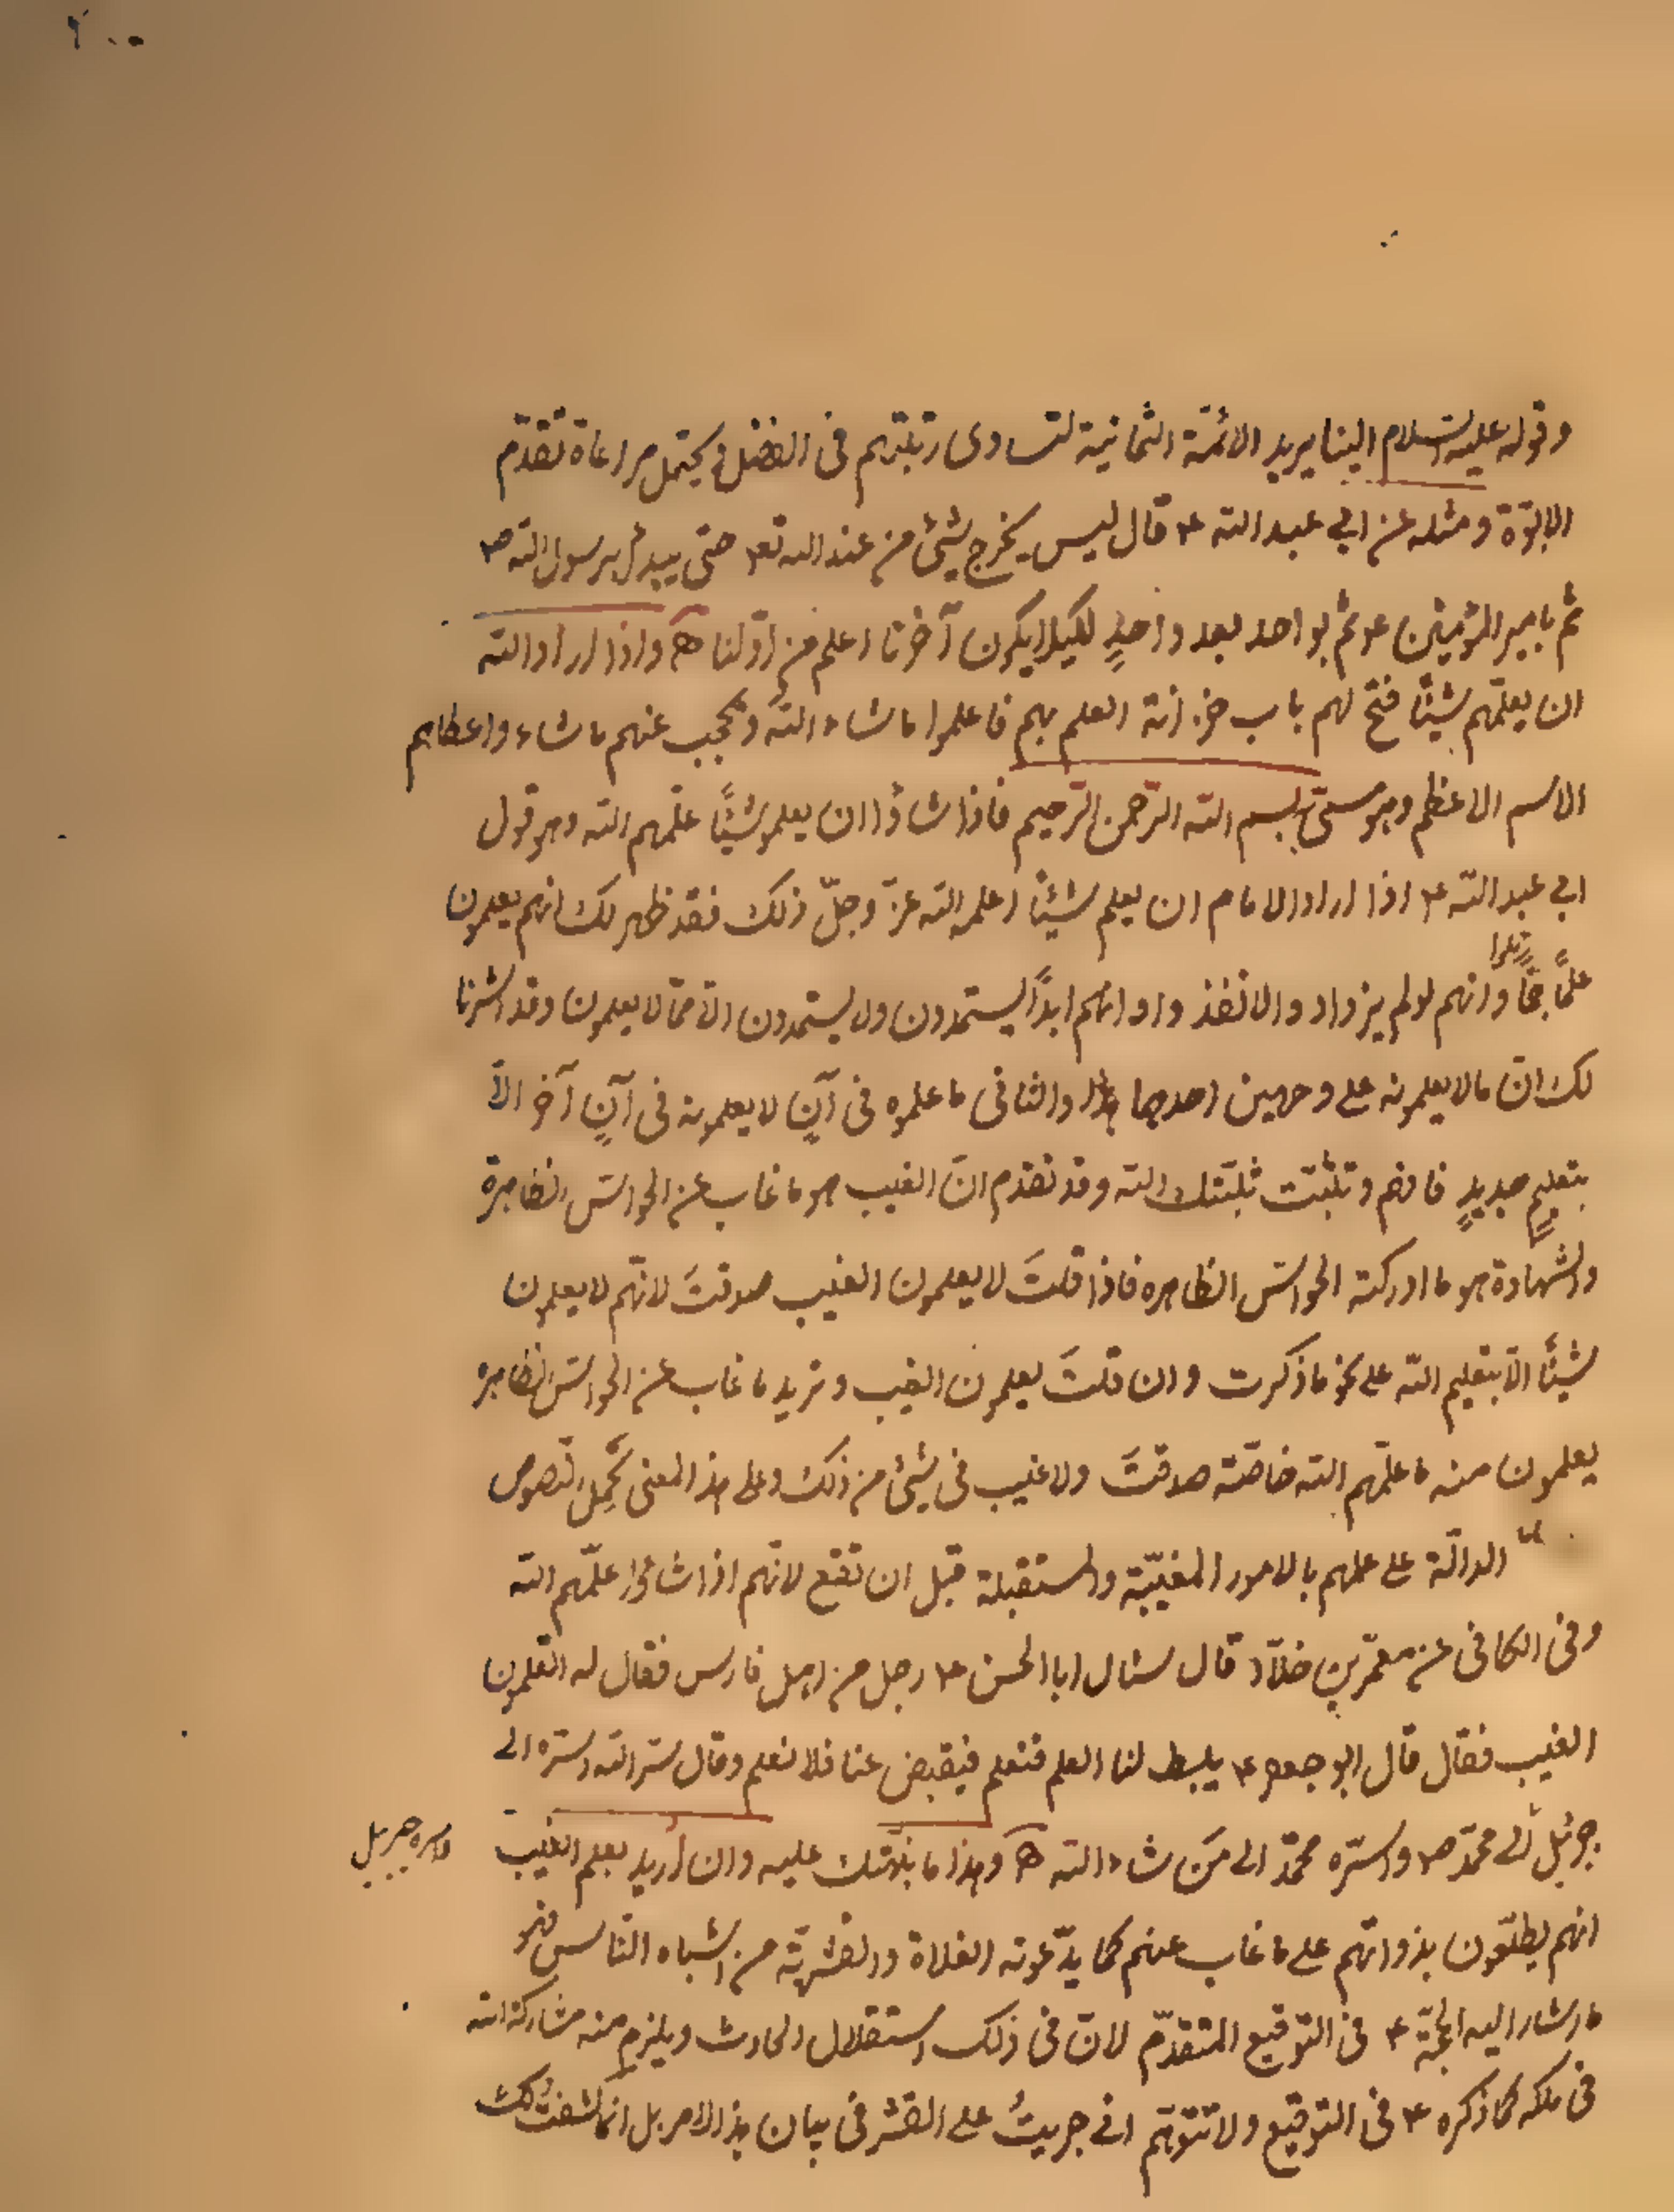 وقوله عليه السلام الينا يريد الائمّة الثمانية لتساوى رتبتهم فى الفضل ويحتمل مراعاة تقدّم
الابوّة ومثله عن ابي عبد اللّه ع قال ليس يخرج شئ من عند اللّه تعـ حتى يبدأ برسول اللّه ص
ثم بامير المؤمنين ع ثم بواحد بعد واحدٍ لكيلا يكون آخرنا اعلم من اوّلنا هـ واذا اراد اللّه
ان يعلّمهم شيئًا فتح لهم باب خزانة العلم بهم فاعلموا ما شاء اللّه ويحجب عنهم ما شاء واعطاهم
الاسم الاعظم وهو مسمّى بسم اللّه الرّحمن الرّحيم فاذا شاؤا ان يعلمو شيئًا علّمهم اللّه وهو قول
ابي عبد اللّه ع اذا اراد الامام ان يعلم شيئًا اعلمه اللّه عزّ وجلّ ذلك فقد ظهر لك انهم يعلمون
علمًا جمًّا وانهم لو لم يزدادوا لانفذ وا وانهم ابدًا يستمدون ولا يستمدون الّا ممّا لا يعلمون وقد اشرنا
لك انّ ما لا يعلمونه على وجهين احدهما هذا والثانى ما علموه فى آنٍ لا يعلمونه فى آنٍ آخر الّا
بتعليمٍ جديدٍ فافهم وتثبّت ثبّتك اللّه وقد تقدّم انّ الغيب هو ما غاب عن الحواسّ الظاهرة
والشهادة هو ما ادركته الحواسّ الظاهره فاذا قلتَ لا يعلمون الغيب صدقتَ لانّهم لا يعلمون
شيئًا الّا بتعليم اللّه على نحو ما ذكرت وان قلتَ يعلمون الغيب وتريد ما غاب عن الحواسّ الظاهره
يعلمون منه ما علّمهم اللّه خاصّة صدقتَ ولا غيب فى شئ من ذلك وعلى هذا المعنى تُحمل النصوص
الدالّة على علمهم بالامور المغيّبة والمستقبلة قبل ان تقع لانّهم اذا شاؤا علّمهم اللّه
وفى الكافى عن معمّر بن خلّاد قال سئال ابا الحسن ع رجل من اهل فارس فقال له اتعلمون
الغيب فقال قال ابو جعفر ع يبسط لنا العلم فنعلم فيقبض عنا فلا نعلم وقال سرّ اللّه اسرّه الى
جبرئيل الى محمّد ص واسرّه محمّد الى مَن شاء اللّه هـ وهذا ما تلوتك عليه وان أريد بعلم الغيب
واسره جبريل
انهم يطلّعون بذواتهم على ما غاب عنهم كما يدّعونه الغلاة والقشريّة من اشباه النّاس فهو
ما اشار اليه الحجّة ع فى التوقيع المتقدّم لانّ فى ذلك استقلال الحادث ويلزم منه مشاركة اللّه
فى ملكه كما ذكره ع فى التوقيع ولا تتوهّم انى جريتُ على القشر فى بيان هذا الامر بل انما كشفتُ لك